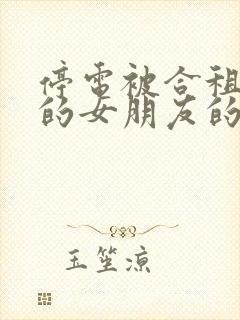 停电被合租
的女朋友的
玉笙凉